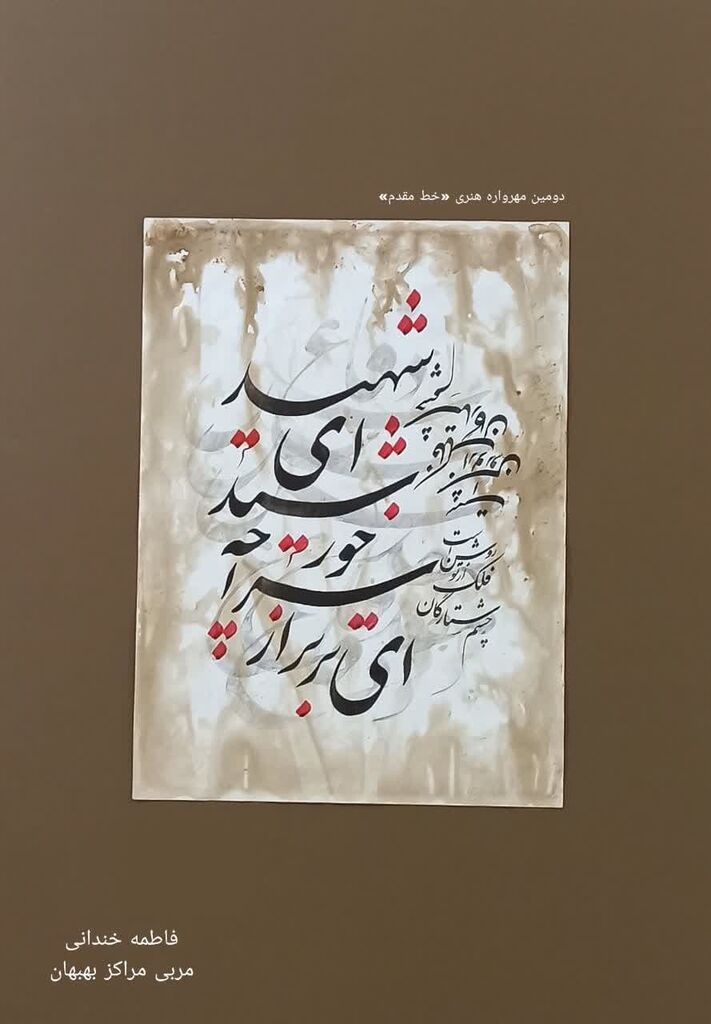 دومین مهرواره هنری «خط مقدم»
ای برتر از
سراچه
خورشید
ای
شهید
چشم ستارگان
فلک از تو
روشن است
فاطمه خندانی
مربی مراکز بهبهان